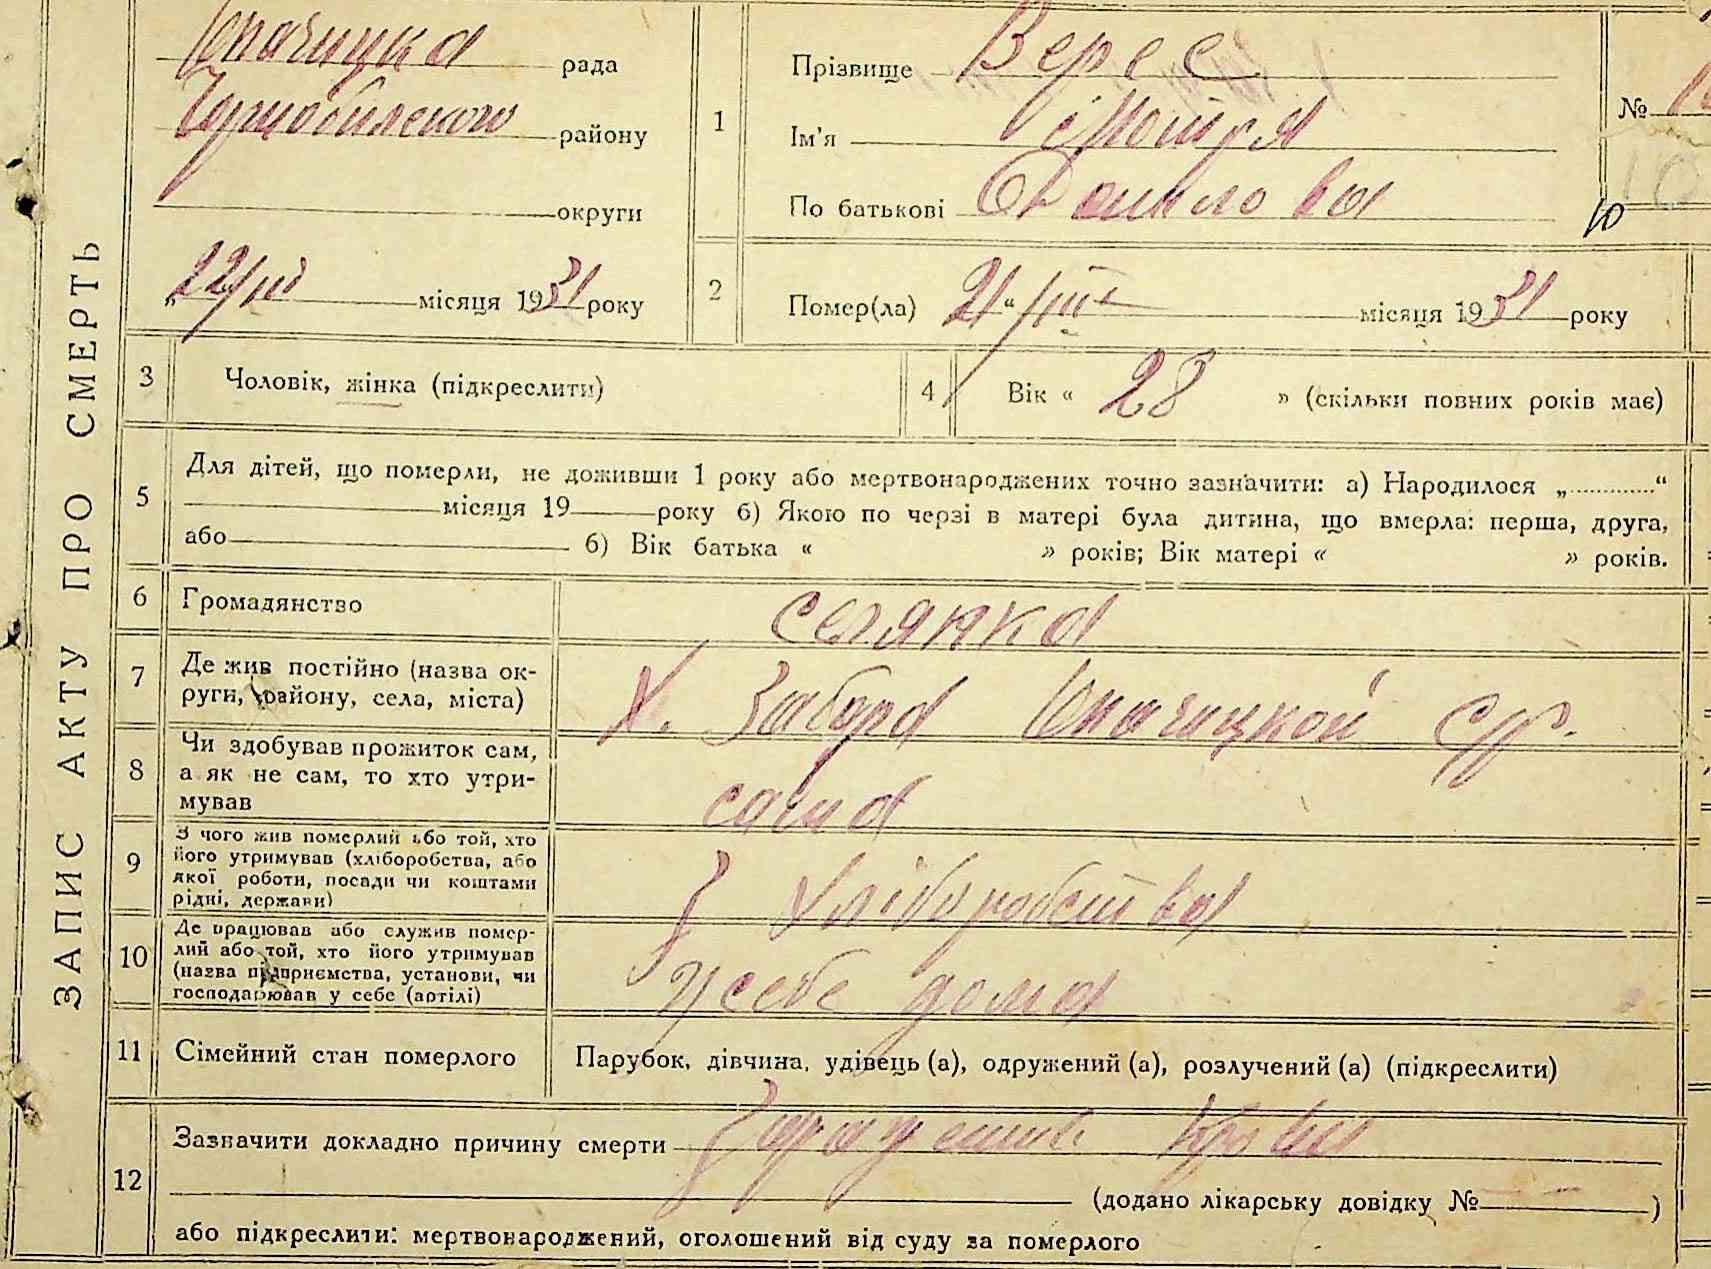 ЗАПИС АКТУ ПРО СМЕРТЬ
Опачицка рада
Чорнобильского району
округи
„22/III місяця 1931 року
1
Прізвище Верес
Ім'я Мотря
По батькові Данилова
№
10
10
2
Помер(ла) 21“/III місяця 1931 року
3
Чоловік, жінка (підкреслити)
4
Вік « 28 » (скільки повних років має)
5
Для дітей, що померли, не доживши 1 року або мертвонароджених точно зазначити: а) Народилося „............“
місяця 19 року б) Якою по черзі в матері була дитина, що вмерла: перша, друга,
або б) Вік батька « » років; Вік матері « » років.
6
Громадянство
селянка
7
Де жив постійно (назва ок-
руги, району, села, міста)
х. Забора Опачицкой с/р.
8
Чи здобував прожиток сам,
а як не сам, то хто утри-
мував
сама
9
З чого жив померлий або той, хто
його утримував (хліборобства, або
якої роботи, посади чи коштами
рідні, держави)
З хліборобства
10
Де працював або служив помер-
лий або той, хто його утримував
(назва підприємства, установи, чи
господарював у себе (артілі)
у себе дома
11
Сімейний стан померлого
Парубок, дівчина, удівець (а), одружений (а), розлучений (а) (підкреслити)
12
Зазначити докладно причину смерти Заражений Крови
(додано лікарську довідку № )
або підкреслити: мертвонароджений, оголошений від суду за померлого